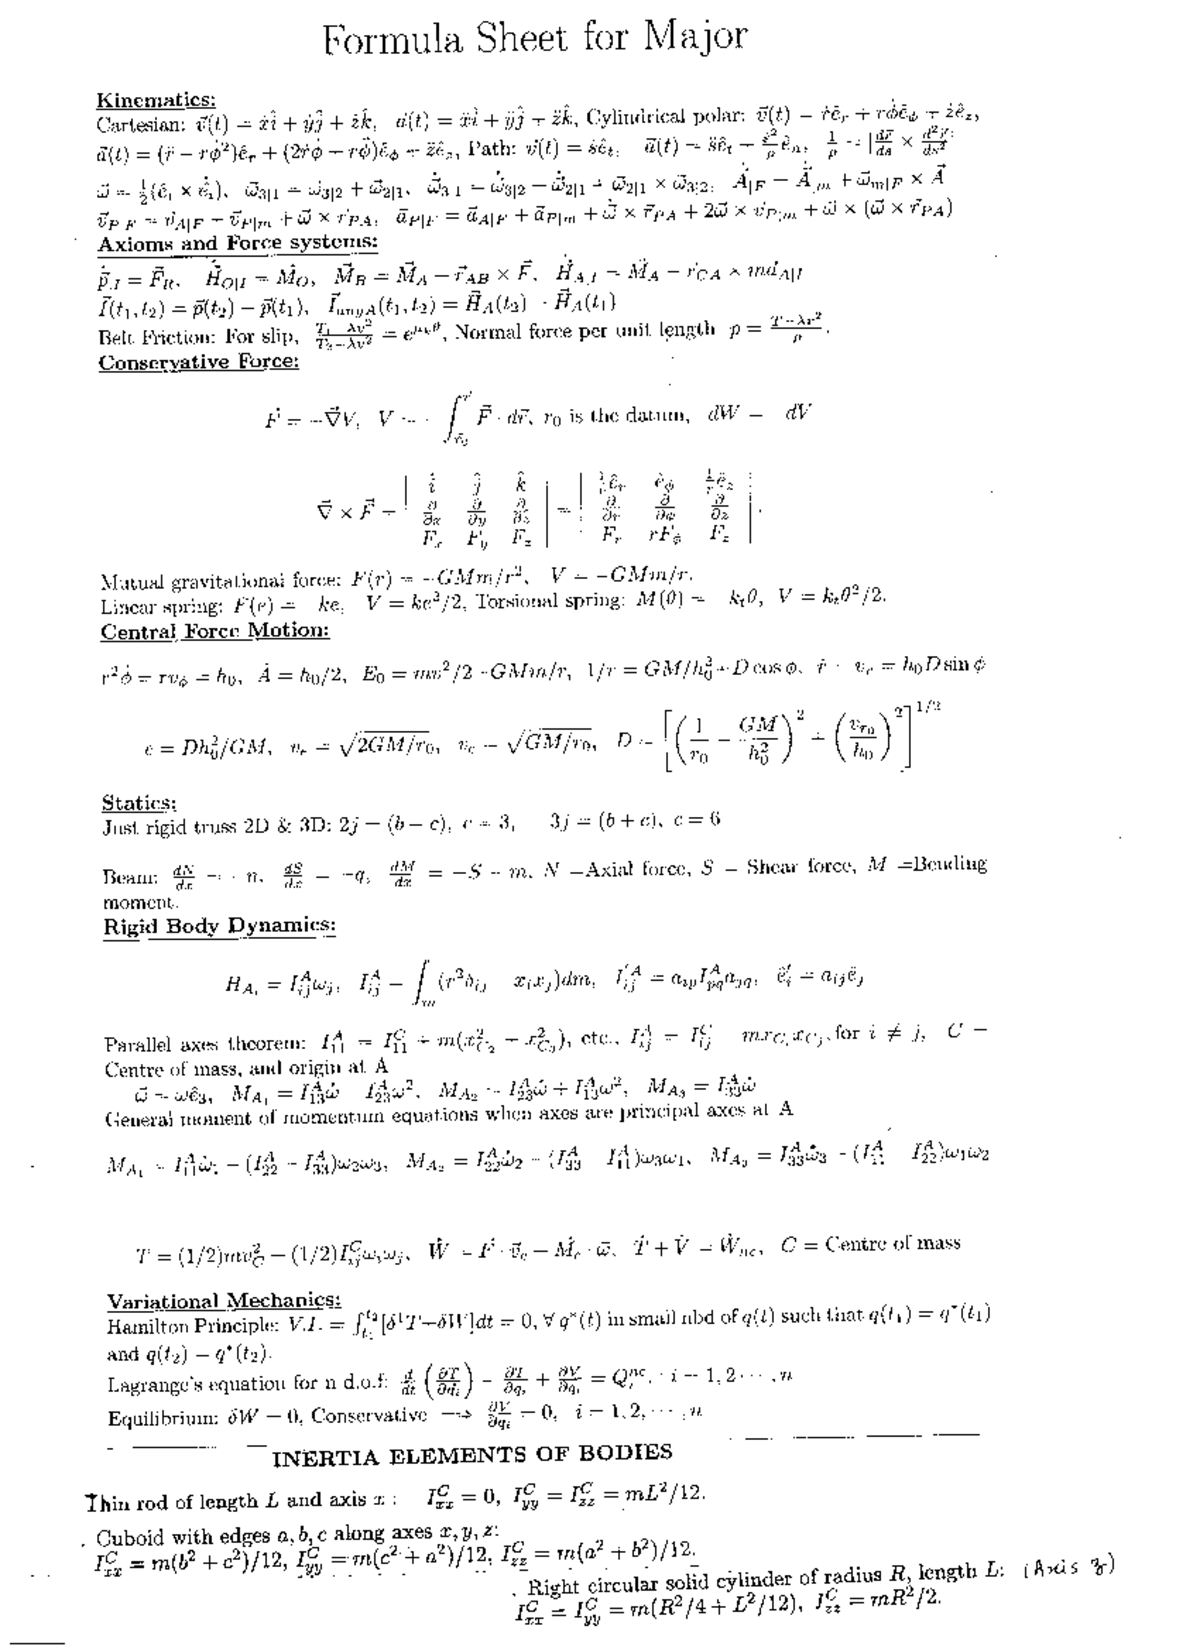 Formula Sheet for Major
Kinematics:
Cartesian: v⃗(t) = ẋî + ẏĵ + żk̂, a⃗(t) = ẍî + ÿĵ + z̈k̂, Cylindrical polar: v⃗(t) = ṙê_r + rφ̇ê_φ + żê_z,
a⃗(t) = (r̈ − rφ̇²)ê_r + (2ṙφ̇ + rφ̈)ê_φ + z̈ê_z, Path: v⃗(t) = ṡê_t, a⃗(t) = s̈ê_t + ṡ²/ρ ê_n, 1/ρ = |dr⃗/ds × d²r⃗/ds²|
ω⃗ = ½(ê_i × ê̇_i), ω⃗_3|1 = ω⃗_3|2 + ω⃗_2|1, ω⃗̇_3|1 = ω⃗̇_3|2 + ω⃗̇_2|1 + ω⃗_2|1 × ω⃗_3|2, A⃗̇_|F = A⃗̇_|m + ω⃗_m|F × A⃗
v⃗_P|F = v⃗_A|F + v⃗_P|m + ω⃗ × r⃗_PA, a⃗_P|F = a⃗_A|F + a⃗_P|m + ω⃗̇ × r⃗_PA + 2ω⃗ × v⃗_P|m + ω⃗ × (ω⃗ × r⃗_PA)
Axioms and Force systems:
p⃗̇_|I = F⃗_R, H⃗̇_O|I = M⃗_O, M⃗_B = M⃗_A − r⃗_AB × F⃗, H⃗̇_A|I = M⃗_A − r⃗_CA × ma⃗_A|I
I⃗(t₁, t₂) = p⃗(t₂) − p⃗(t₁), I⃗_angA(t₁, t₂) = H⃗_A(t₂) − H⃗_A(t₁)
Belt Friction: For slip, (T₁−λv²)/(T₂−λv²) = e^(μ_kθ), Normal force per unit length p = (T−λv²)/ρ.
Conservative Force:
F⃗ = −∇⃗V, V = − ∫_{r⃗₀}^{r⃗} F⃗ · dr⃗, r₀ is the datum, dW = dV
∇⃗ × F⃗ = | î ĵ k̂ ; ∂/∂x ∂/∂y ∂/∂z ; F_x F_y F_z | = | (1/r)ê_r ê_φ (1/r)ê_z ; ∂/∂r ∂/∂φ ∂/∂z ; F_r rF_φ F_z |.
Mutual gravitational force: F(r) = −GMm/r², V = −GMm/r.
Linear spring: F(e) = ke, V = ke²/2, Torsional spring: M(θ) = k_tθ, V = k_tθ²/2.
Central Force Motion:
r²φ̇ = rv_φ = h₀, Ȧ = h₀/2, E₀ = mv²/2 − GMm/r, 1/r = GM/h₀² + D cos φ, ṙ = v_r = h₀D sin φ
e = Dh₀²/GM, v_e = √(2GM/r₀), v_c = √(GM/r₀), D = [(1/r₀ − GM/h₀²)² + (v_r₀/h₀)²]^1/2
Statics:
Just rigid truss 2D & 3D: 2j = (b + c), c = 3, 3j = (b + c), c = 6
Beam: dN/dx = − n, dS/dx = −q, dM/dx = −S − m, N =Axial force, S = Shear force, M =Bending
moment.
Rigid Body Dynamics:
H_Ai = I^A_ij ω_j, I^A_ij = ∫_m (r²δ_ij x_i x_j)dm, I'^A_ij = a_ip I^A_pq a_jq, ê'_i = a_ij ê_j
Parallel axes theorem: I^A_11 = I^C_11 + m(x²_C2 + x²_C3), etc., I^A_ij = I^C_ij mx_Ci x_Cj, for i ≠ j, C =
Centre of mass, and origin at A
ω⃗ = ωê₃, M_A1 = I^A_13 ω̇ I^A_23 ω², M_A2 = I^A_23 ω̇ + I^A_13 ω², M_A3 = I^A_33 ω̇
General moment of momentum equations when axes are principal axes at A
M_A1 = I^A_11 ω̇₁ − (I^A_22 − I^A_33)ω₂ω₃, M_A2 = I^A_22 ω̇₂ − (I^A_33 I^A_11)ω₃ω₁, M_A3 = I^A_33 ω̇₃ − (I^A_11 I^A_22)ω₁ω₂
T = (1/2)mv²_C + (1/2)I^C_ij ω_i ω_j, Ẇ = F⃗ · v⃗_c + M⃗_c · ω⃗, Ṫ + V̇ = Ẇ_nc, C = Centre of mass
Variational Mechanics:
Hamilton Principle: V.I. = ∫_{t₁}^{t₂} [δ¹T+δW]dt = 0, ∀ q*(t) in small nbd of q(t) such that q(t₁) = q*(t₁)
and q(t₂) = q*(t₂).
Lagrange's equation for n d.o.f: d/dt (∂T/∂q̇_i) − ∂T/∂q_i + ∂V/∂q_i = Q_i^nc, i = 1, 2 ··· , n
Equilibrium: δW = 0, Conservative ⟶ ∂V/∂q_i = 0, i = 1, 2, ··· , n
INERTIA ELEMENTS OF BODIES
Thin rod of length L and axis x : I^C_xx = 0, I^C_yy = I^C_zz = mL²/12.
Cuboid with edges a, b, c along axes x, y, z:
I^C_xx = m(b² + c²)/12, I^C_yy = m(c² + a²)/12, I^C_zz = m(a² + b²)/12.
Right circular solid cylinder of radius R, length L: (Axis z)
I^C_xx = I^C_yy = m(R²/4 + L²/12), I^C_zz = mR²/2.